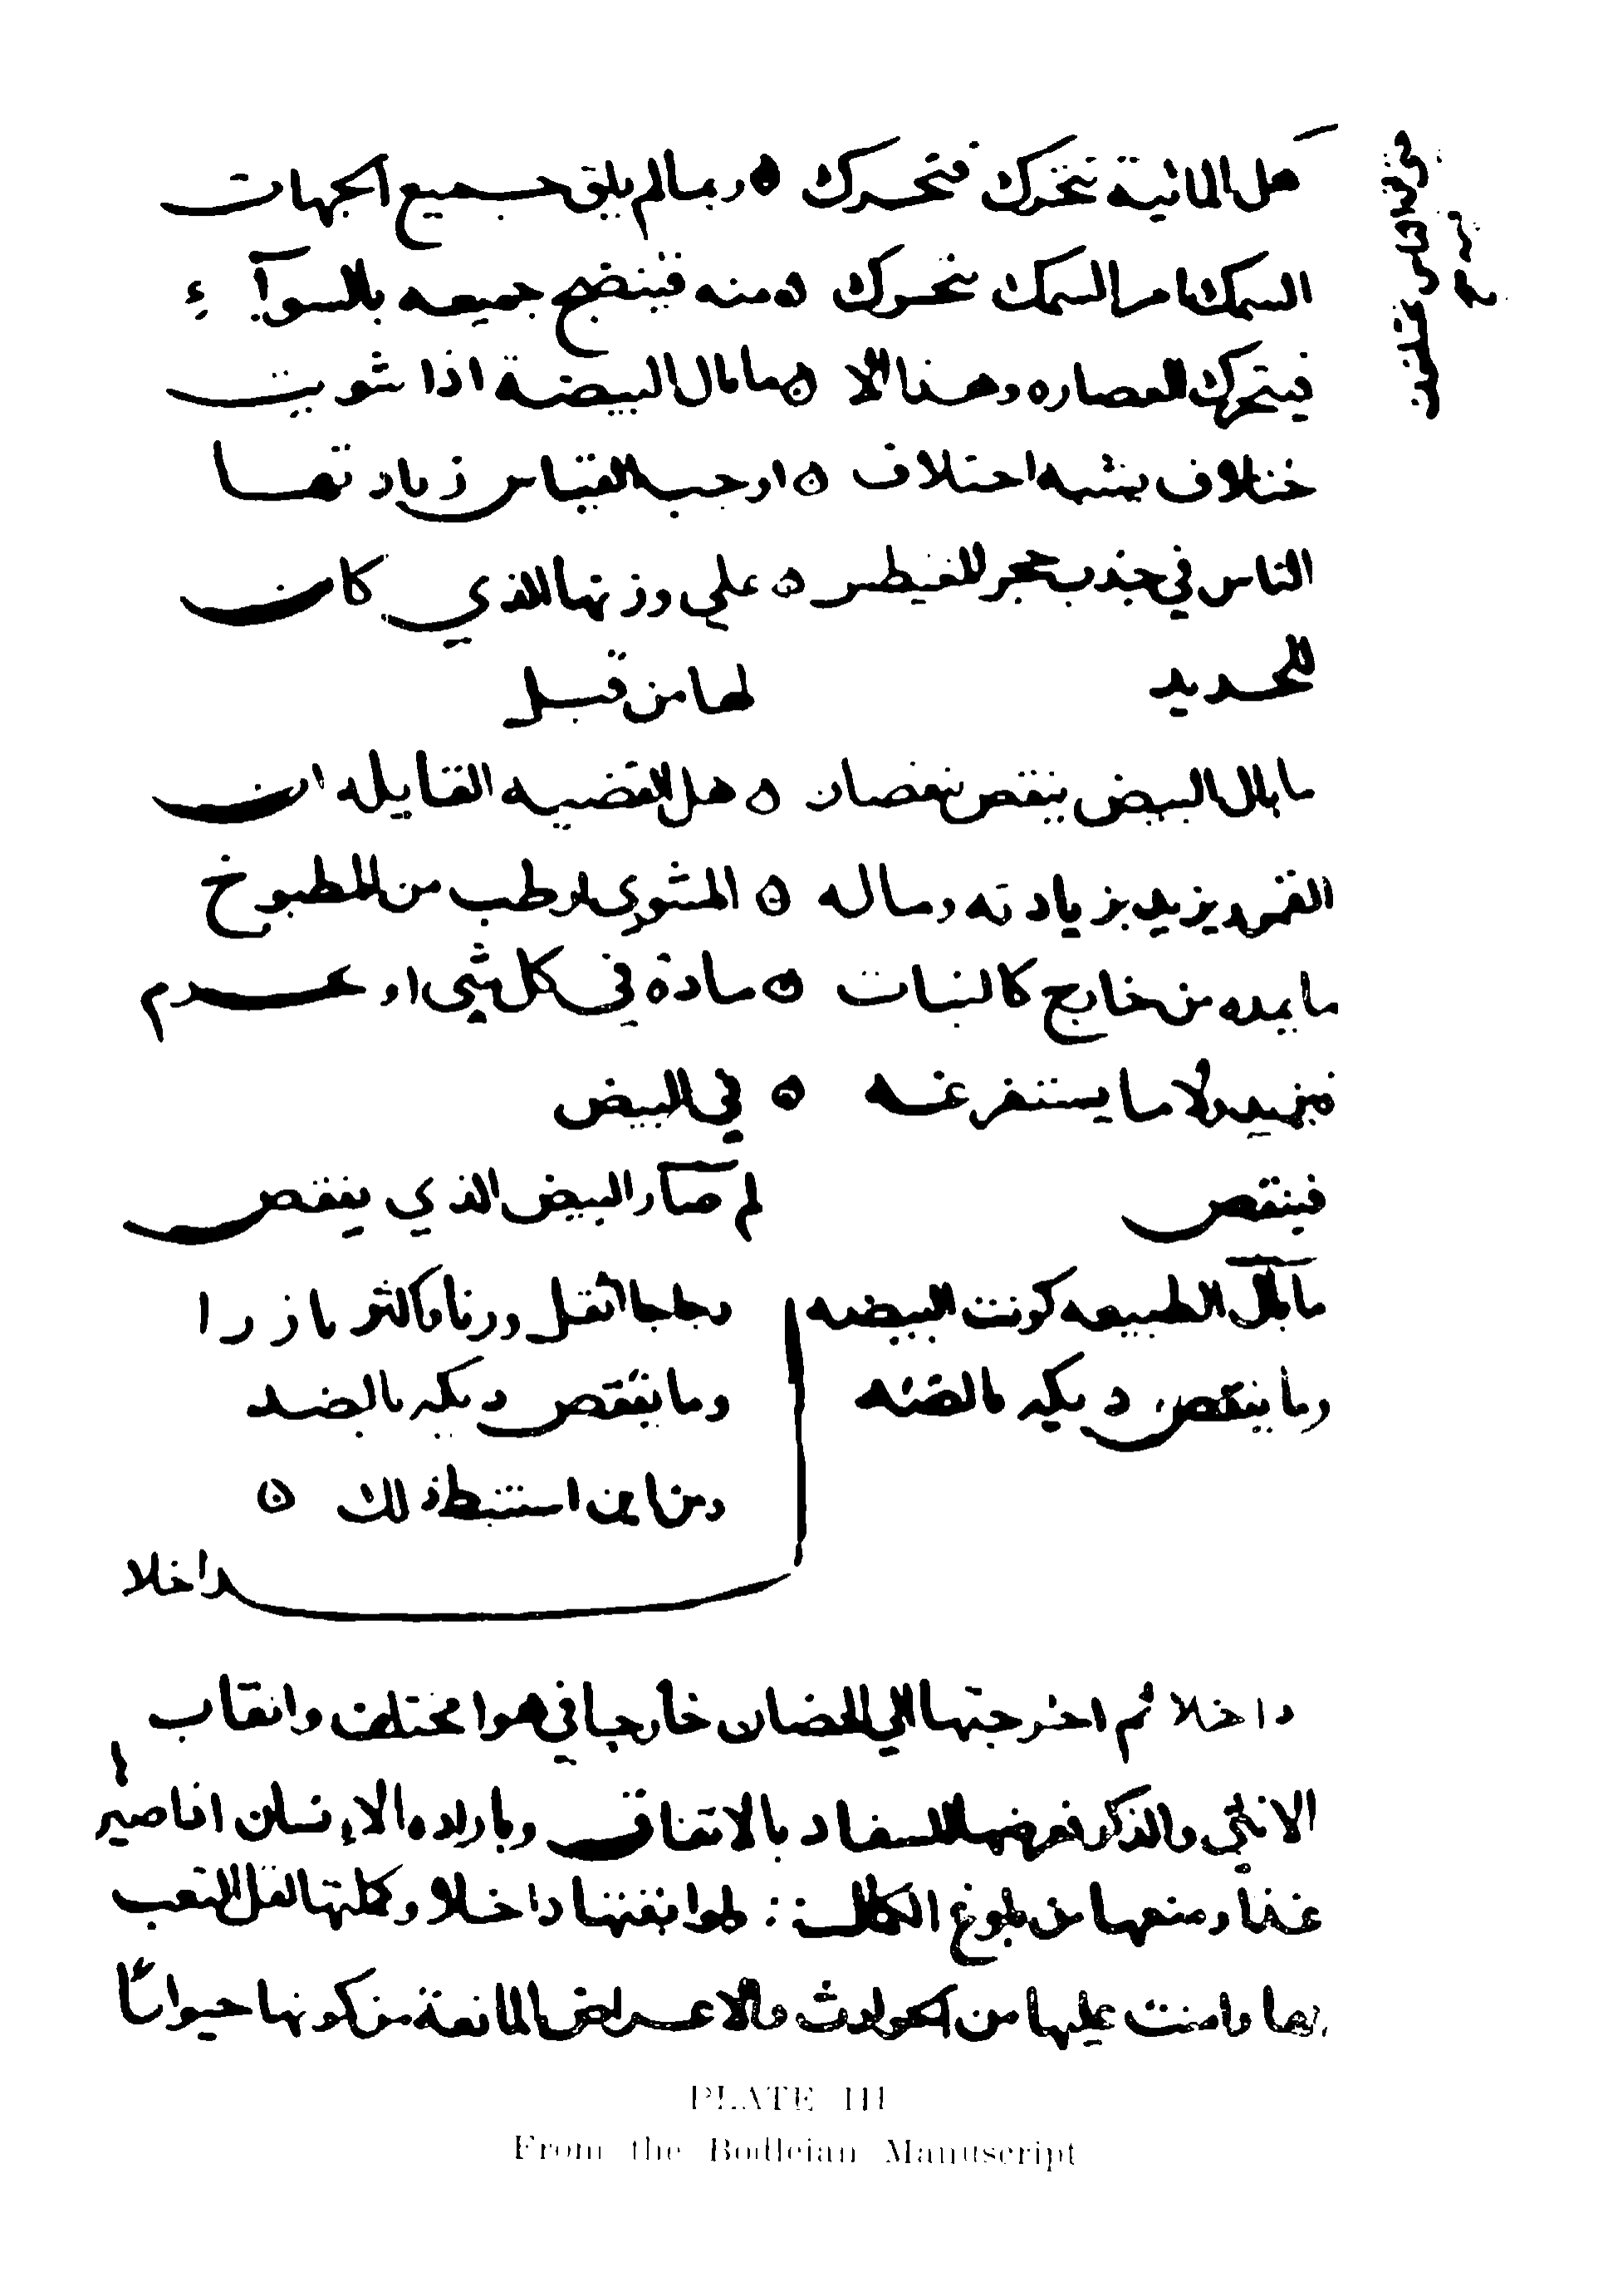 هل المائية تتحرك فتحرك ٥ ربما لم يلق جميع الجهات
السمك ام السمك يتحرك ٥ منه فينضج جميعه بالسوآء
فيتحرك العصاره وهذا الا ٥ ما بال البيضة اذا شويت
ختلاف يشبه اختلاف ٥ اوجب القياس زيادتها
الناس في جذب حجر المغيطس ٥ علي وزنها الذي كان
للحديد لها من قبل
ما بال البيض ينقص نقصان ٥ هل القضيه القايله ان
القمر ويزيد بزيادته وماله ٥ المشوي ارطب من المطبوخ
ما يمده من خارج كالنبات ٥ سادة في كل شي او عدم
فيزيد ولا ما يستفرغه ٥ في البيض
فينقص لم صار البيض الذي ينقص
ما بال الطبيعه كونت البيضه دجاجا اثقل وزنا واكثر بازرا
وما ينقص ديكه بالضد
وما ينقص ديكه
ومن اين استنبط ذلك ٥
داخلا
داخلا ثم اخرجتها الي الحضان خارجا في هوا مختلف وانقاب
الانثي والذكر فعرضها للسفاد بالاتفاق وباراده الانسان اناصير
غذا ومنعها من بلوغ الكمال ∴ لو ابقتها داخلا وكملتها لقل التعب
بها وامنت عليها من الحوادث والاعراض المانعة من كونها حيوانا
PLATE III
From the Bodleian Manuscript